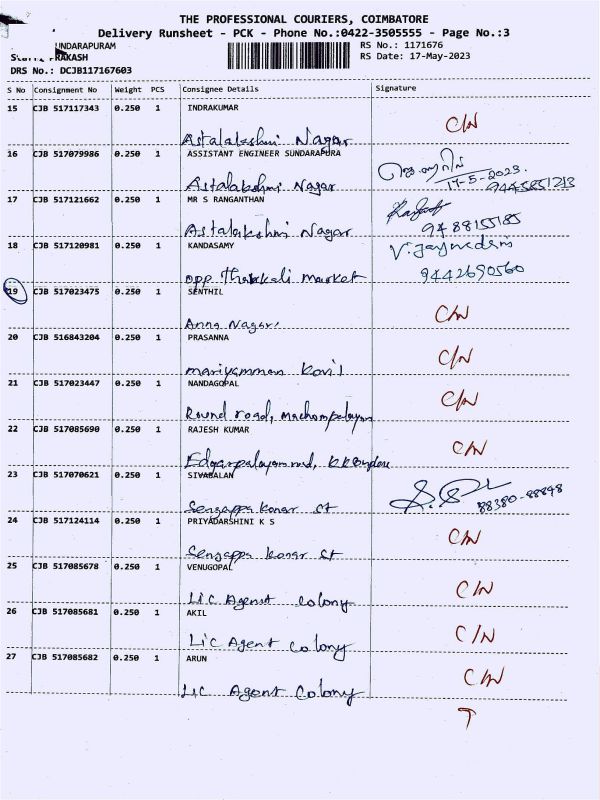 THE PROFESSIONAL COURIERS, COIMBATORE
Delivery Runsheet - PCK - Phone No.:0422-3505555 - Page No.:3
UNDARAPURAM
RS No.: 1171676
PRAKASH
RS Date: 17-May-2023
DRS No.: DCJB117167603
S No Consignment No Weight PCS Consignee Details Signature
15 CJB 517117343 0.250 1 INDRAKUMAR
C/N
Astalakshmi Nagar
16 CJB 517079986 0.250 1 ASSISTANT ENGINEER SUNDARAPURA
17-5-2023.
9445851213
Astalakshmi Nagar
17 CJB 517121662 0.250 1 MR S RANGANTHAN
9488155185
Astalakshmi Nagar
18 CJB 517120981 0.250 1 KANDASAMY
9442690560
opp Thakkali market
19 CJB 517023475 0.250 1 SENTHIL
C/N
Anna Nagar
20 CJB 516843204 0.250 1 PRASANNA
C/N
mariyamman Kovil
21 CJB 517023447 0.250 1 NANDAGOPAL
C/N
Round road, machampalayam
22 CJB 517085690 0.250 1 RAJESH KUMAR
C/N
23 CJB 517070621 0.250 1 SIVABALAN
88380-88848
Sengappa Konar st
24 CJB 517124114 0.250 1 PRIYADARSHINI K S
C/N
Sengappa Konar st
25 CJB 517085678 0.250 1 VENUGOPAL
C/N
Lic Agent colony
26 CJB 517085681 0.250 1 AKIL
C/N
Lic Agent colony
27 CJB 517085682 0.250 1 ARUN
C/N
Lic Agent Colony